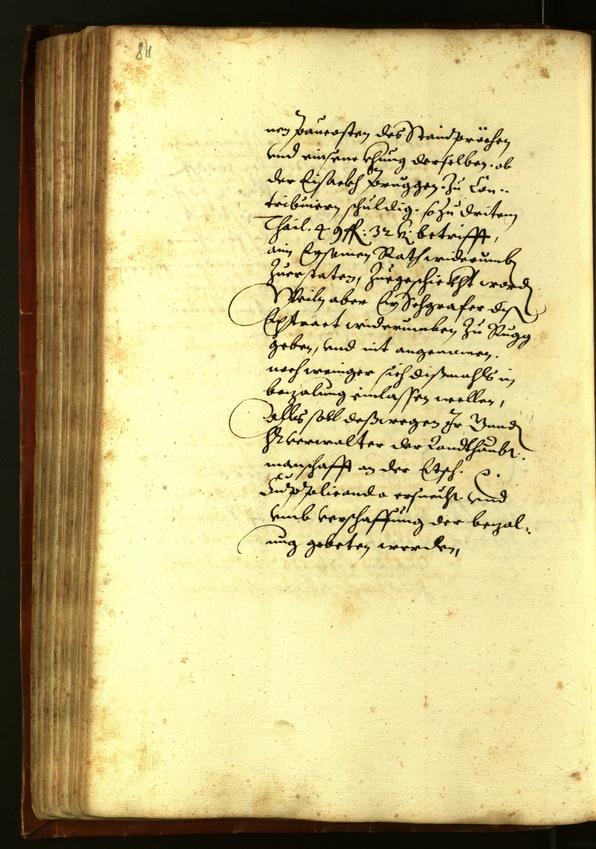 84
nen paucosten des Stainprüchen
und einsenckhung derselben. ob
der Eisackh Pruggen. Zu Con-
tribuiern schuldig. so zu dritem
Thail. 49 fl: 32 kr betrifft,
aim Ersamen Rath widerumb
Zuerstaten, Zuegeschickht word
Weiln aber Er Schgrafer dis
Extract widerumben Zu Rugg
geben, und nit angenomen.
noch weniger sich dißmahls in
bezalung einlassen wellen,
Alls soll deßwegen Ir
Hr verwalter der Landthaubt-
manschafft an der Etsch.
Supplicando ersuecht und
umb verschaffung der bezal-
ung gebeten werden,